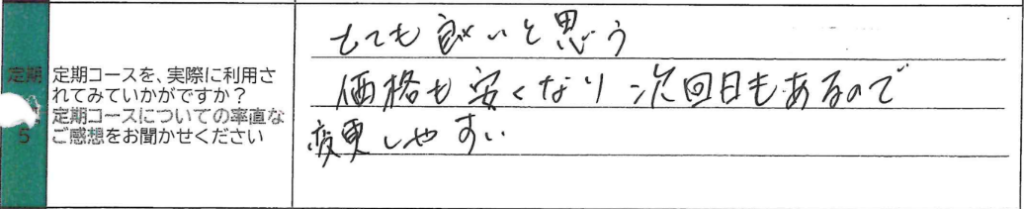 定期
5
定期コースを、実際に利用さ
れてみていかがですか?
定期コースについての率直な
ご感想をお聞かせください
とても良いと思う
価格も安くなり 次回日もあるので
変更しやすい